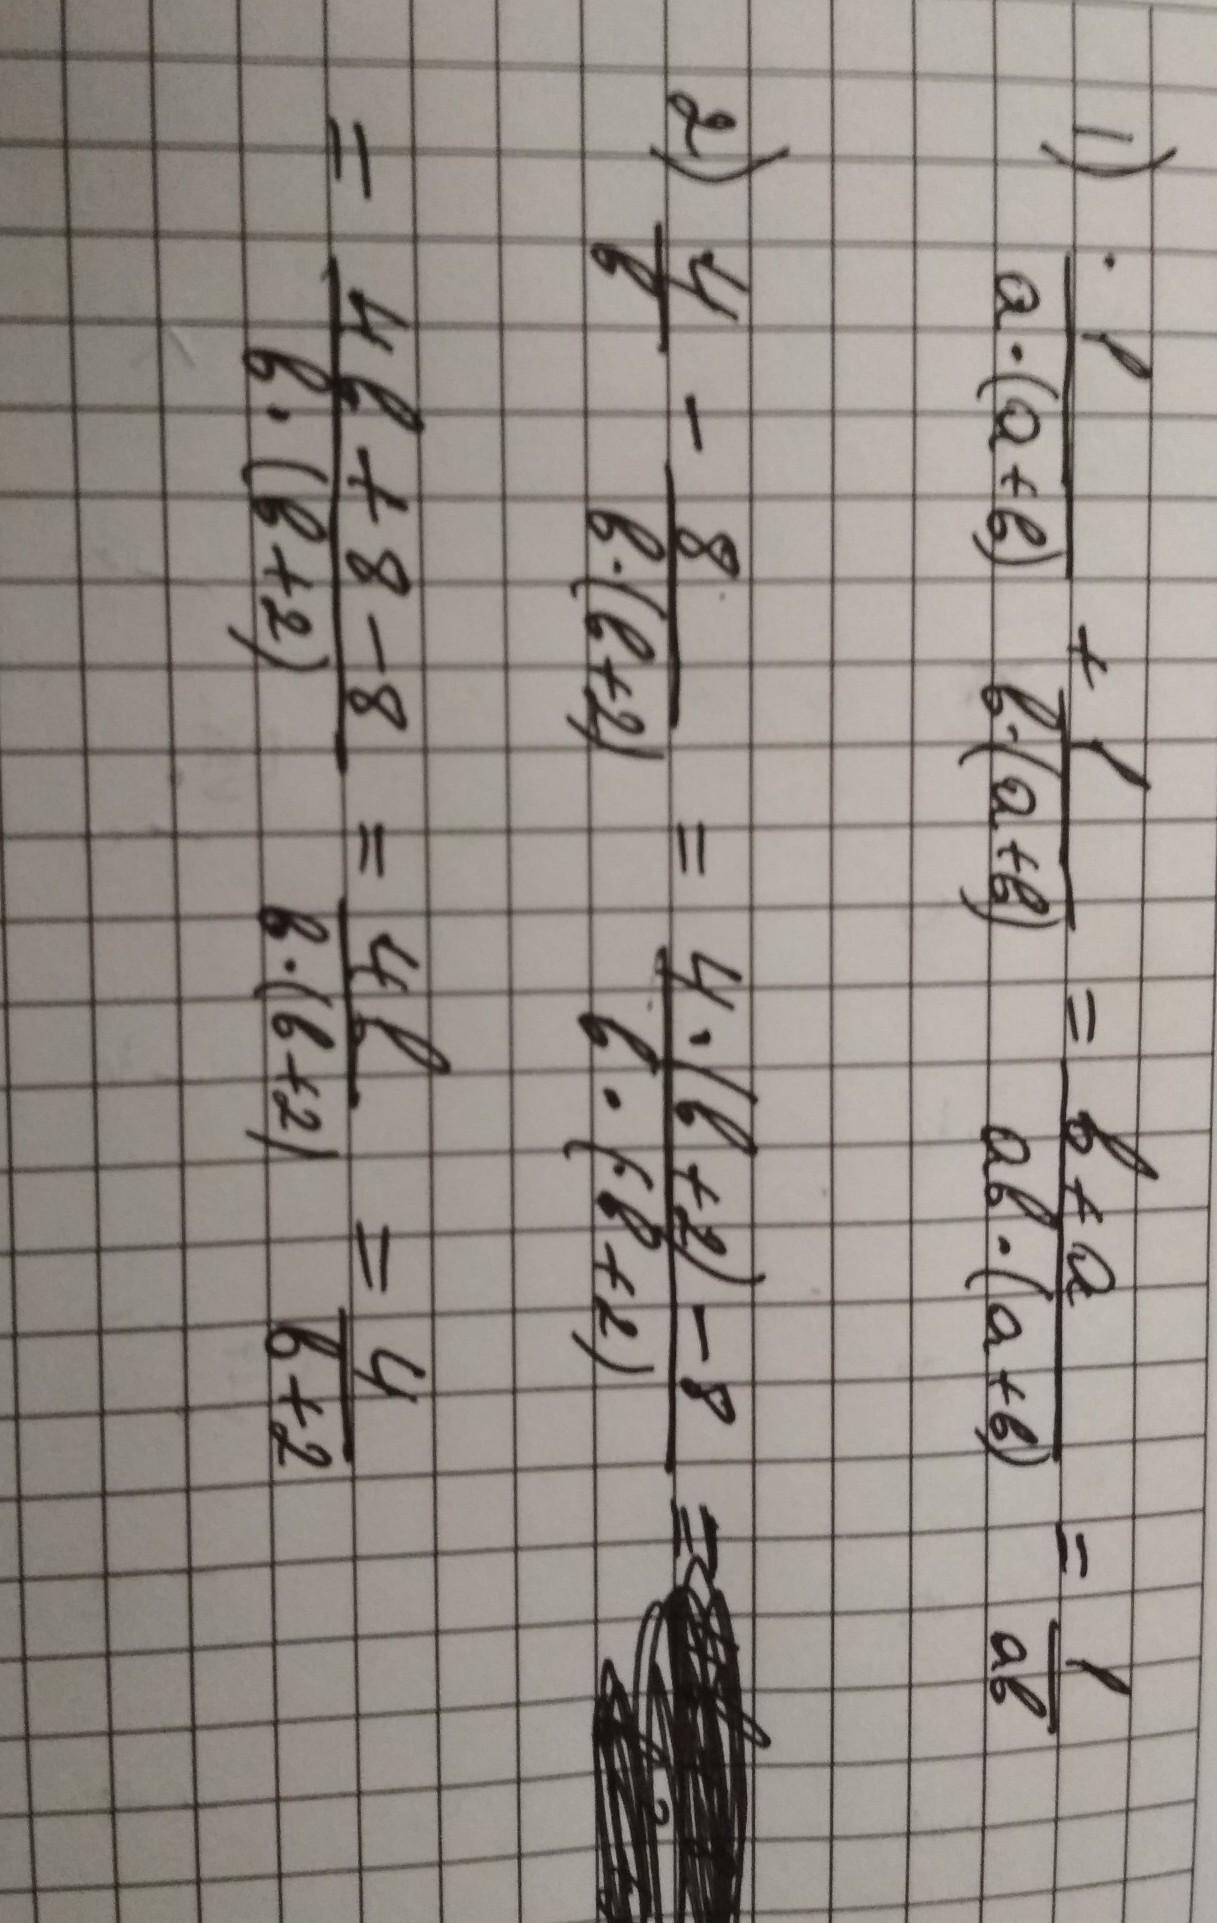 1) 1/(a·(a+b)) + 1/(b·(a+b)) = (b+a)/(ab·(a+b)) = 1/(ab)
2) 4/b - 8/(b·(b+2)) = (4·(b+2)-8)/(b·(b+2)) =
= (4b+8-8)/(b·(b+2)) = 4b/(b·(b+2)) = 4/(b+2)